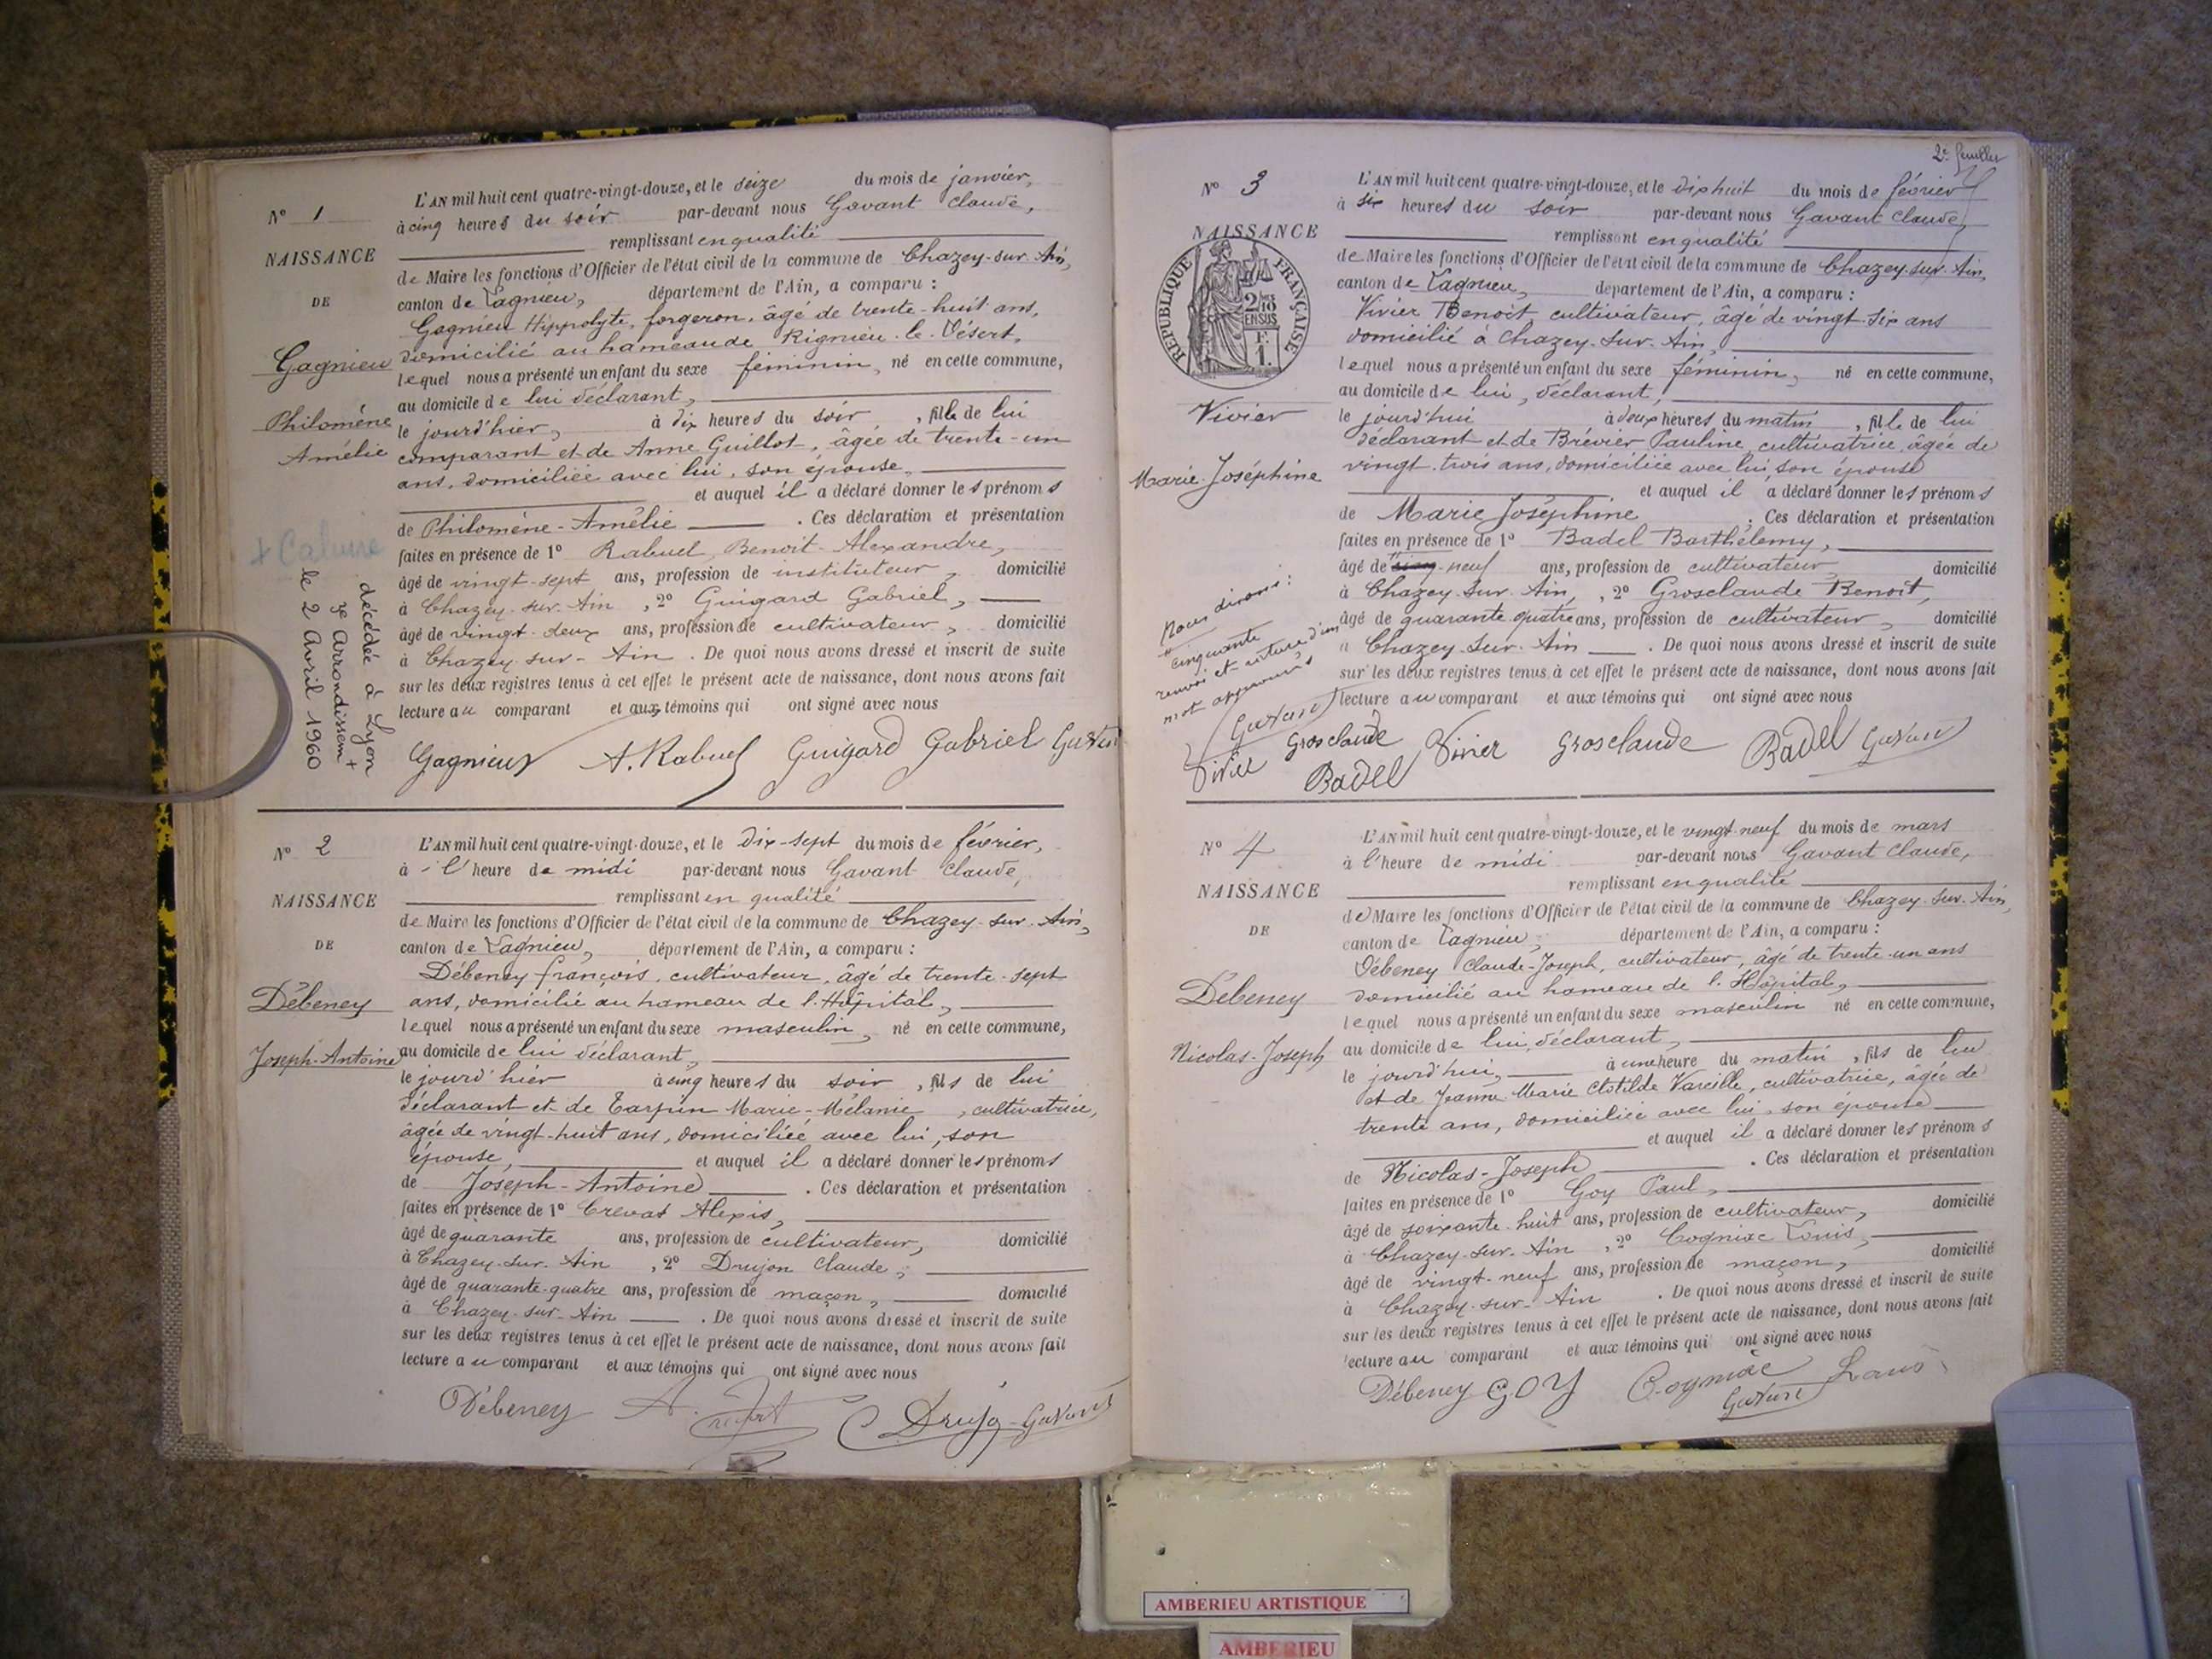 N° 1
NAISSANCE
DE
Gagnieu
Philomène
Amélie
+ Caluire
décédée à Lyon
3e Arrondissemt
le 2 Avril 1960
L'AN mil huit cent quatre-vingt-douze, et le seize du mois de janvier,
à cinq heures du soir par-devant nous Gavant Claude,
remplissant en qualité
de Maire les fonctions d'Officier de l'état civil de la commune de Chazey-sur-Ain,
canton de Lagnieu, département de l'Ain, a comparu :
Gagnieu Hippolyte, forgeron, âgé de trente-huit ans,
domicilié au hameau de Rignieu-le-Désert,
lequel nous a présenté un enfant du sexe féminin, né en cette commune,
au domicile de lui déclarant,
le jourd'hier, à dix heures du soir, fille de lui
comparant et de Anne Guillot, âgée de trente-un
ans, domiciliée avec lui, son épouse,
et auquel il a déclaré donner les prénoms
de Philomène-Amélie. Ces déclaration et présentation
faites en présence de 1° Rabuel Benoit-Alexandre,
âgé de vingt-sept ans, profession de instituteur, domicilié
à Chazey-sur-Ain, 2° Guigard Gabriel,
âgé de vingt-deux ans, profession de cultivateur, domicilié
à Chazey-sur-Ain. De quoi nous avons dressé et inscrit de suite
sur les deux registres tenus à cet effet le présent acte de naissance, dont nous avons fait
lecture au comparant et aux témoins qui ont signé avec nous
Gagnieu A. Rabuel Guigard Gabriel Gavant
N° 2
NAISSANCE
DE
Débeney
Joseph-Antoine
L'AN mil huit cent quatre-vingt-douze, et le dix-sept du mois de février,
à l'heure de midi par-devant nous Gavant Claude,
remplissant en qualité
de Maire les fonctions d'Officier de l'état civil de la commune de Chazey-sur-Ain,
canton de Lagnieu, département de l'Ain, a comparu :
Débeney françois, cultivateur, âgé de trente-sept
ans, domicilié au hameau de l'Hôpital,
lequel nous a présenté un enfant du sexe masculin, né en cette commune,
au domicile de lui déclarant,
le jourd'hier à cinq heures du soir, fils de lui
déclarant et de Tarpin Marie-Mélanie, cultivatrice,
âgée de vingt-huit ans, domiciliée avec lui, son
épouse, et auquel il a déclaré donner les prénoms
de Joseph-Antoine. Ces déclaration et présentation
faites en présence de 1° Crevat Alexis,
âgé de quarante ans, profession de cultivateur, domicilié
à Chazey-sur-Ain, 2° Drujon Claude,
âgé de quarante-quatre ans, profession de maçon, domicilié
à Chazey-sur-Ain. De quoi nous avons dressé et inscrit de suite
sur les deux registres tenus à cet effet le présent acte de naissance, dont nous avons fait
lecture au comparant et aux témoins qui ont signé avec nous
Débeney A. Crevat C Drujon Gavant
2e feuillet
N° 3
NAISSANCE
RÉPUBLIQUE FRANÇAISE
2/10es
EN SUS
F.
1.
Vivier
Marie-Joséphine
Nous disons:
"cinquante"
renvoi et rature d'un
mot approuvés
Gavant
Vivier Grosclaude
Badel
L'AN mil huit cent quatre-vingt-douze, et le dix huit du mois de février
à six heures du soir par-devant nous Gavant Claude,
remplissant en qualité
de Maire les fonctions d'Officier de l'état civil de la commune de Chazey-sur-Ain,
canton de Lagnieu, département de l'Ain, a comparu :
Vivier Benoit cultivateur, âgé de vingt-six ans
domicilié à Chazey-sur-Ain,
lequel nous a présenté un enfant du sexe féminin, né en cette commune,
au domicile de lui, déclarant,
le jourd'hui à deux heures du matin, fille de lui
déclarant et de Brévier Pauline, cultivatrice, âgée de
vingt-trois ans, domiciliée avec lui son épouse
et auquel il a déclaré donner les prénoms
de Marie Joséphine. Ces déclaration et présentation
faites en présence de 1° Badel Barthélemy,
âgé de neuf ans, profession de cultivateur, domicilié
à Chazey-sur-Ain, 2° Grosclaude Benoit,
âgé de quarante quatre ans, profession de cultivateur, domicilié
à Chazey-sur-Ain. De quoi nous avons dressé et inscrit de suite
sur les deux registres tenus à cet effet le présent acte de naissance, dont nous avons fait
lecture au comparant et aux témoins qui ont signé avec nous
Vivier Grosclaude Badel Gavant
N° 4
NAISSANCE
DE
Débeney
Nicolas-Joseph
L'AN mil huit cent quatre-vingt-douze, et le vingt-neuf du mois de mars
à l'heure de midi par-devant nous Gavant Claude,
remplissant en qualité
de Maire les fonctions d'Officier de l'état civil de la commune de Chazey-sur-Ain,
canton de Lagnieu, département de l'Ain, a comparu :
Débeney Claude-Joseph, cultivateur, âgé de trente-un ans
domicilié au hameau de l'Hôpital,
lequel nous a présenté un enfant du sexe masculin né en cette commune,
au domicile de lui, déclarant,
le jourd'hui, à une heure du matin, fils de lui
et de Jeanne Marie Clotilde Vareille, cultivatrice, âgée de
trente ans, domiciliée avec lui, son épouse
et auquel il a déclaré donner les prénoms
de Nicolas-Joseph. Ces déclaration et présentation
faites en présence de 1° Goy Paul,
âgé de soixante-huit ans, profession de cultivateur, domicilié
à Chazey-sur-Ain, 2° Cogniac Louis,
âgé de vingt-neuf ans, profession de maçon, domicilié
à Chazey-sur-Ain. De quoi nous avons dressé et inscrit de suite
sur les deux registres tenus à cet effet le présent acte de naissance, dont nous avons fait
lecture au comparant et aux témoins qui ont signé avec nous
Débeney GOY Cogniac Louis
Gavant
AMBERIEU ARTISTIQUE
AMBERIEU